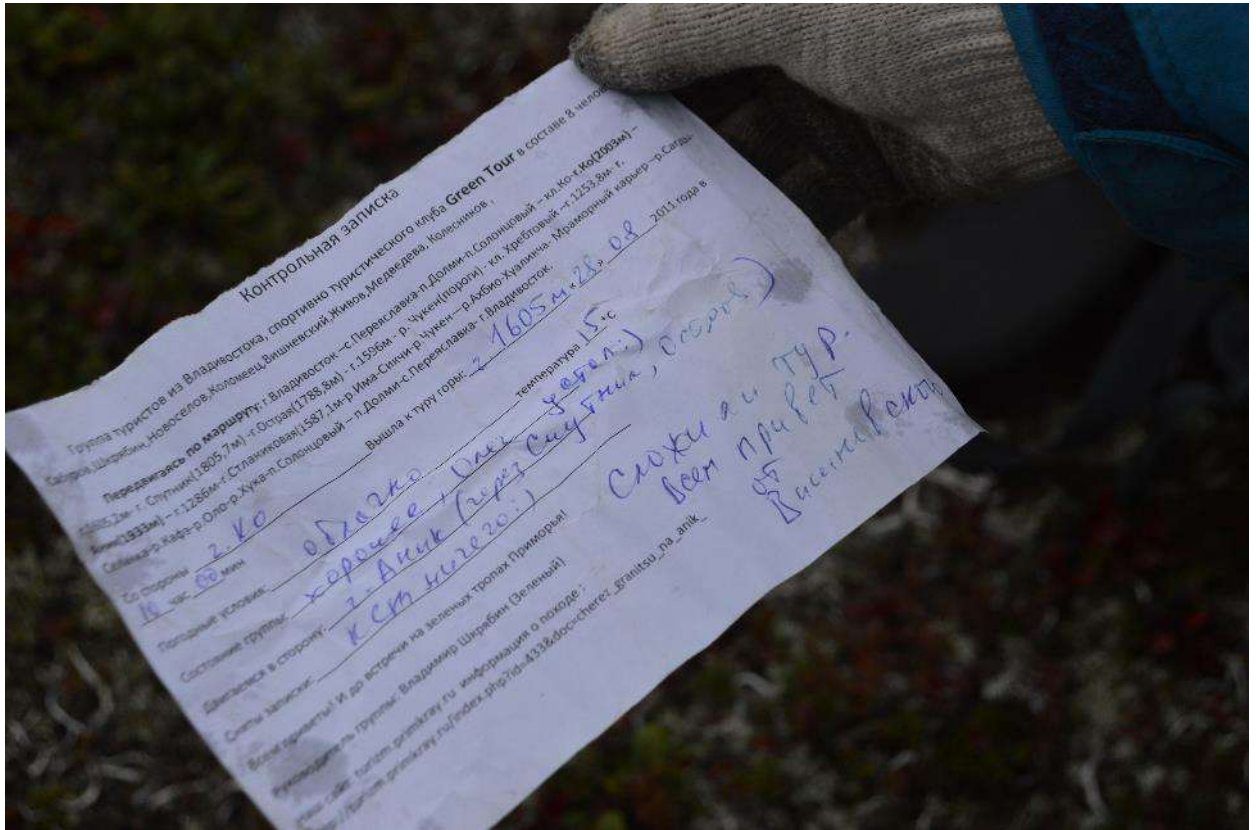 Контрольная записка
Группа туристов из Владивостока, спортивно туристического клуба Green Tour в составе 8 челов
Шкрябин,Новоселов,Коломеец,Вишневский,Живов,Медведева, Колесников,
Передвигаясь по маршруту: г.Владивосток –с.Переяславка-п.Долми-п.Солонцовый – кл.Ко-г.Ко(2003м) –
г. Спутник(1805,7м) -г.Острая(1788,8м) - г.1596м - р. Чукен(пороги) - кл. Хребтовый –г.1253,8м- г.
(1933м) – г.1286м-г.Стланиковая(1587,1м-р.Има-Сикчи-р.Чукен—р.Ахбио-Хуалинча- Мраморный карьер—р.Сагды-
р.Кафа-р.Оло-р.Хука-п.Солонцовый – п.Долми-с.Переяславка- г.Владивосток.
Со стороны г. Ко Вышла к туру горы: г 1605м «28» 08 2011 года в
час 00 мин
Погодные условия: облачно температура 15 °С
Состояние группы: хорошее, Олег устал:)
Двигаемся в сторону: г. Аник (через Спутник,
Сняты записки: к ничего:)
Всем приветы! И до встречи на зеленых тропах Приморья!
Сложили тур.
Всем привет
от
Вишневского
Руководитель группы: Владимир Шкрябин (Зеленый)
сайт: turizm.primkray.ru информация о походе :
http://turizm.primkray.ru/index.php?id=433&doc=cherez_granitsu_na_anik_